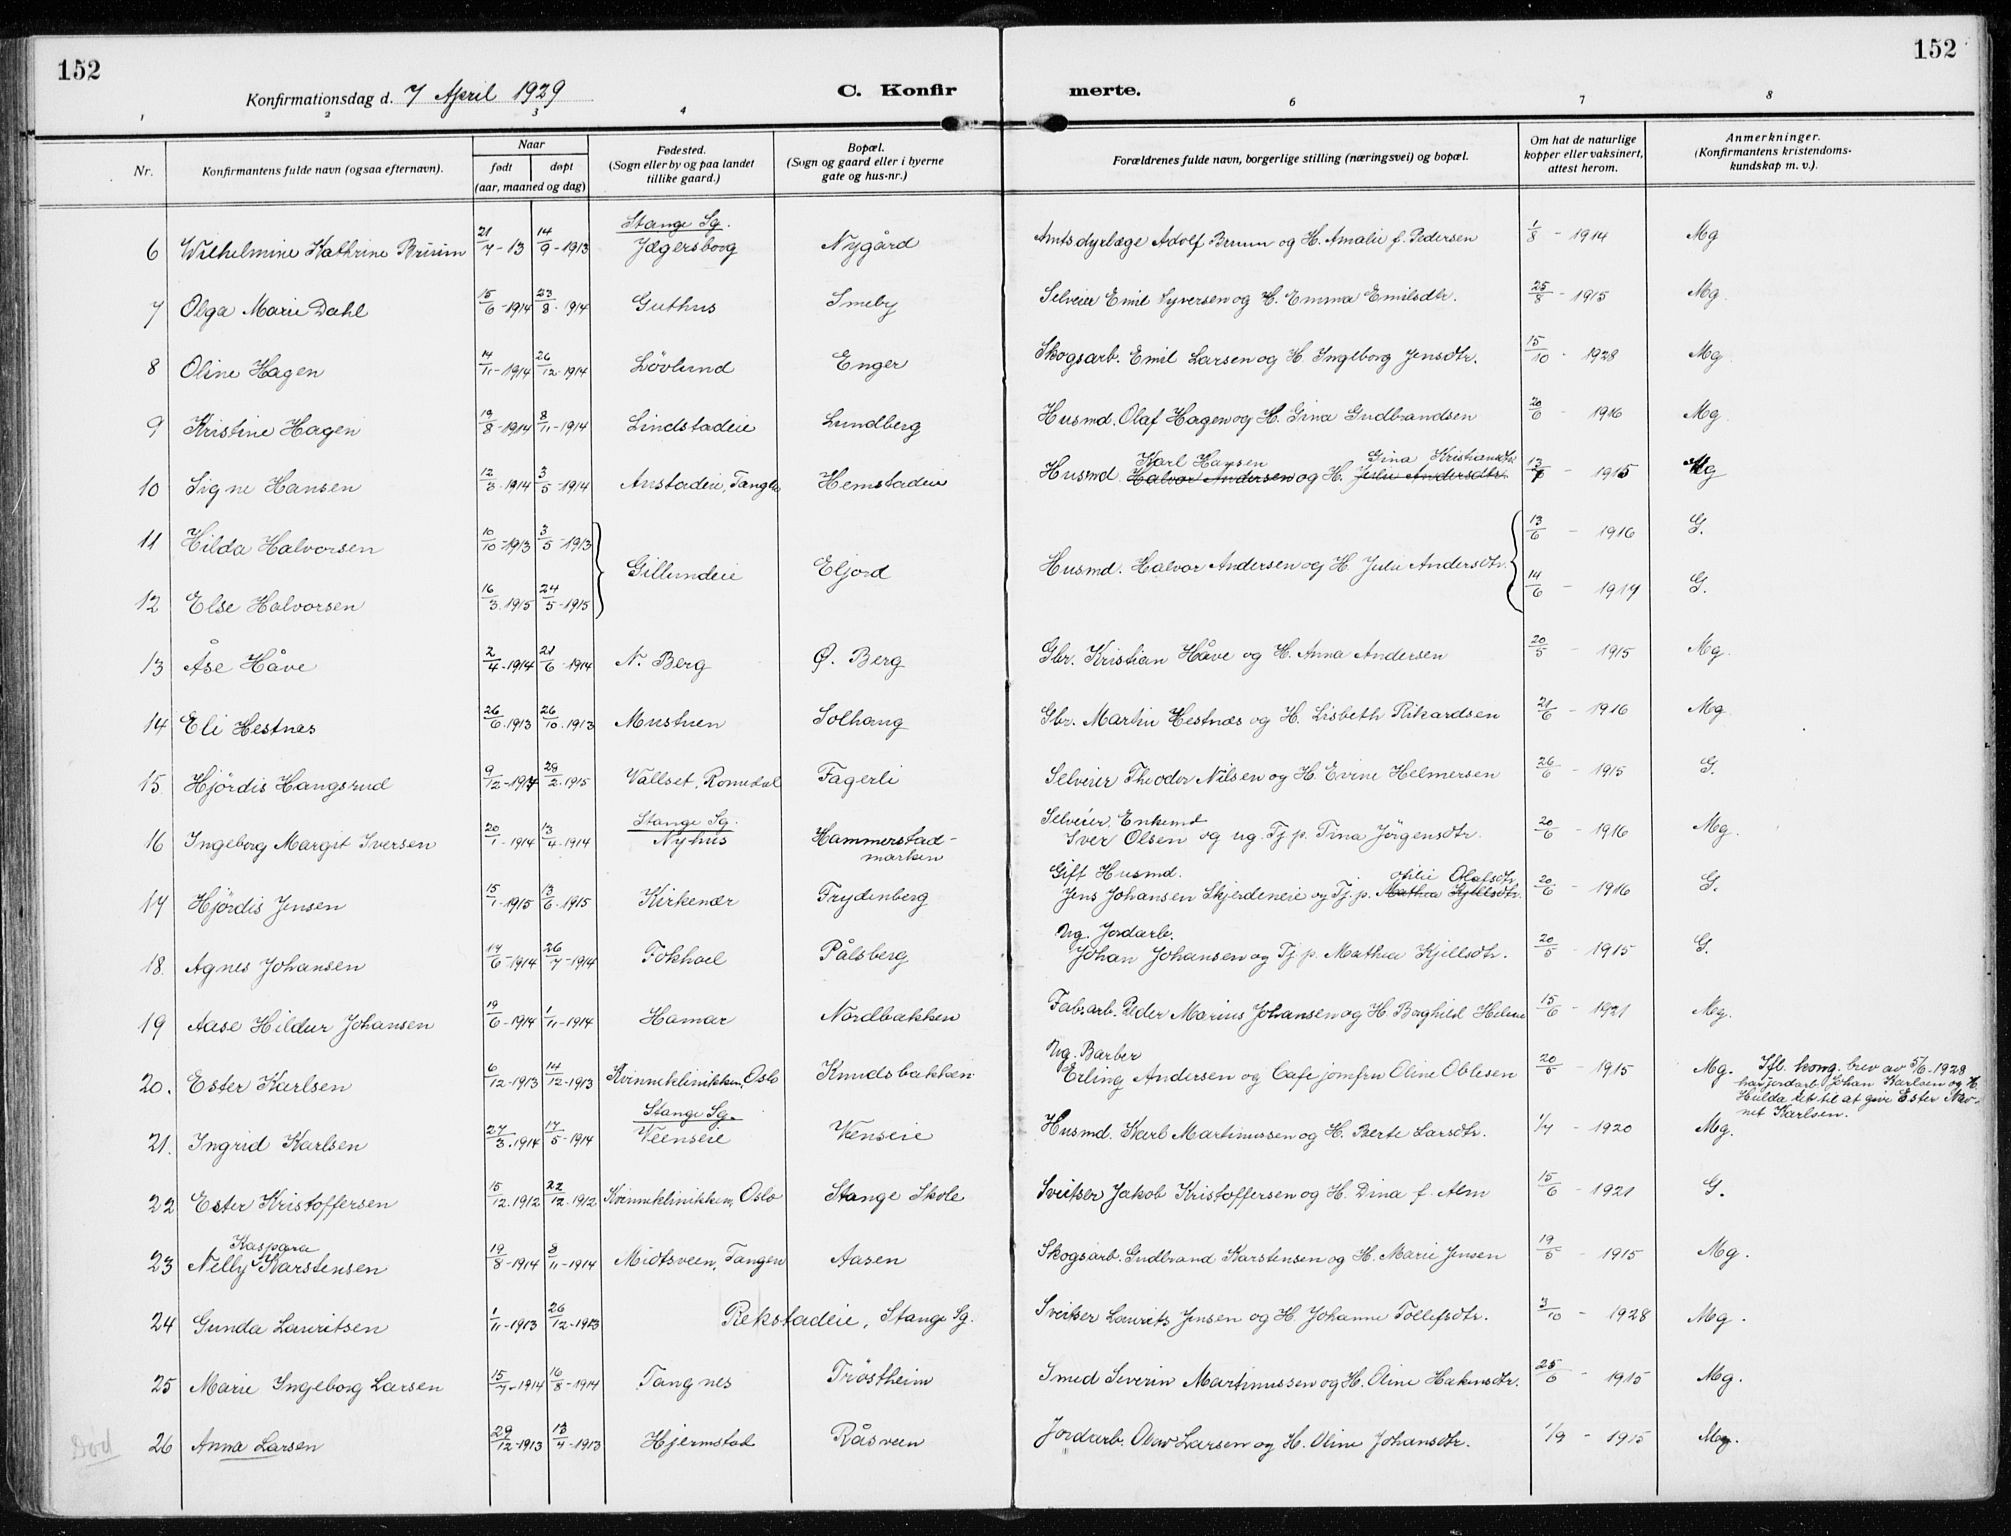 152
152
Konfirmationsdag d. 7 April 1929
C. Konfir
merte.
1 2 3 4 6 7 8
Nr.
Konfirmantens fulde navn (ogsaa efternavn).
Naar
født
døpt
(aar, maaned og dag)
Fødested.
(Sogn eller by og paa landet
tillike gaard.)
Bopæl.
(Sogn og gaard eller i byerne
gate og hus-nr.)
Forældrenes fulde navn, borgerlige stilling (næringsvei) og bopæl.
Om hat de naturlige
kopper eller vaksinert,
attest herom.
Anmerkninger.
(Konfirmantens kristendoms-
kundskap m. v.).
Stange Sg.
6 Wilhelmine Kathrine Bruun 21/7-13 14/9-1913 Jægersborg Nygård Amtsdyrlæge Adolf Bruun og H. Amalie f. Pedersen 1/8 - 1914 Mg
7 Olga Marie Dahl 15/6-1914 23/8-1914 Guthus Smeby Selveier Emil Syversen og H. Emma Emilsdtr. 25/8 - 1915 Mg.
8 Oline Hagen 14/11-1914 26/12-1914 Lövlund Enger Skogsarb. Emil Larsen og H. Ingeborg Jensdtr. 15/10 - 1928 Mg.
9 Kristine Hagen 19/8-1914 8/11-1914 Lindstadeie Lundberg Husmd. Olaf Hagen og H. Gina Gudbrandsen 20/6 - 1916 Mg.
Karl Hansen Gina Kristiansdtr
10 Signe Hansen 12/3-1914 3/5-1914 Anstadeie, Tangen Hemstadeie Husmd. Halvor Andersen og H. Julie Andersdtr. - 1915 Mg
11 Hilda Halvorsen 10/10-1913 3/5-1913 13/6 - 1916 G.
Gillundeie Eljord Husmd. Halvor Andersen og H. Julie Andersdtr.
12 Else Halvorsen 16/3.1915 24/5-1915 14/6 - 1917 G.
13 Åse Håve 2/4-1914 21/6-1914 N. Berg Ø. Berg Gbr. Kristian Håve og H. Anna Andersen 20/5 - 1915 Mg.
14 Eli Hestnes 26/6.1913 26/10.1913 Mustuen Solhaug Gbr. Martin Hestnæs og H. Lisbeth Rikardsen 21/6 - 1916 Mg.
15 Hjördis Haugsrud 9/12-1914 /2.1915 Vallset, Romedal Fagerli Selveier Theodor Nilsen og H. Evine Helmersen 26/6 - 1915 G.
Stange Sg. Selveier Enkemd
16 Ingeborg Margit Iversen 20/1-1914 13/4-1914 Nyhus Hammerstad- Iver Olsen og ug. Tj. p. Tina Jörgensdtr. 20/6 - 1916 Mg.
marken
Gift Husmd. Olafsdtr
17 Hjördis Jensen 15/1-1915 13/6.1915 Kirkenær Frydenberg Jens Johansen Skjerdeneie og Tj. p. Mathea Kjellsdtr. 20/6 - 1916 G.
Ug. Jordarb.
18 Agnes Johansen 14/6-1914 26/7-1914 Fokhoel Pålsberg Johan Johansen og Tj. p. Mathea Kjellsdtr. 20/5 - 1915 G.
19 Aase Hildur Johansen 19/6-1914 1/11-1914 Hamar Nordbakken Fabr.arb. Peder Marius Johansen og H. Borghild Helene 15/6 - 1921 Mg.
Ug. Barber
20. Ester Karlsen 6/12-1913 14/12-1913 Kvinneklinikken, Oslo Knudsbakken Erling Andersen og Cafejomfru Oline Oblesen 20/5 - 1915 Mg. Ifl. kong. brev av 5/6-1928
har jordarb. Johan Karlsen og H.
Hulda ret til at give Ester Nav-
net Karlsen.
Stange Sg.
21. Ingrid Karlsen 27/3.1914 17/5-1914 Veenseie Venseie Husmd. Karl Martinussen og H. Berte Larsdtr. 1/7 - 1920 Mg.
22 Ester Kristoffersen 15/12.1912 22/12.1912 Kvinneklinikken, Oslo Stange Skole Sveitser Jakob Kristoffersen og H. Dina f. Alm 15/6 - 1921 G.
Kaspara
23 Nelly Karstensen 19/8-1914 8/11-1914 Midtsveen, Tangen Aasen Skogsarb. Gudbrand Karstensen og H. Marie Jensen 19/5 - 1915 Mg.
24 Gunda Lauritsen 1/11-1913 26/12-1913 Rekstadeie, Stange Sg. Sveitser Laurits Jensen og H. Johanne Tollefsdtr. 3/10 - 1928 Mg.
25 Marie Ingeborg Larsen 15/7-1914 16/8-1914 Tangnes Tröstheim Smed Severin Martinussen og H. Oline Hakensdtr. 25/6 - 1915 Mg.
Död 26 Anna Larsen 29/12-1913 13/4-1913 Hjermstad Råsveen Jordarb. Olav Larsen og H. Oline Johansdtr. 1/9 - 1915 Mg.